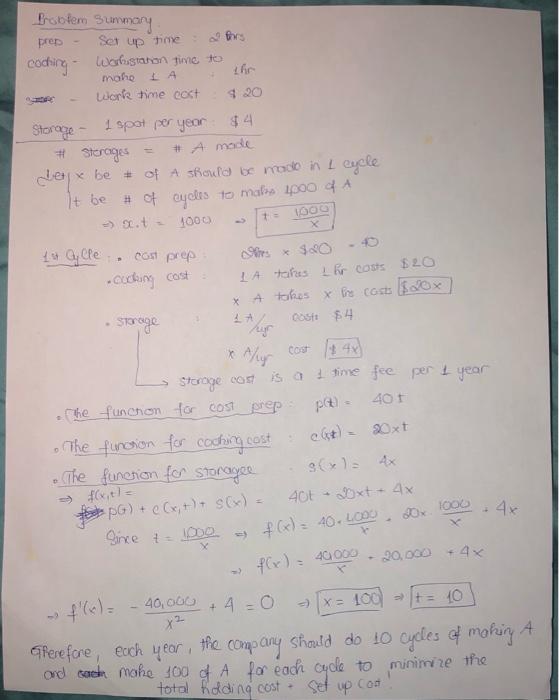 Problem Summary
prep - Set up time : 2 hrs
cooking - Workstation time to
make 1 A : 1hr
- Work time cost : $ 20
Storage - 1 spot per year : $ 4
# Storages = # A made
Let x be # of A should be made in 1 cycle
t be # of cycles to make 1000 of A
⇒ x.t = 1000 ⇒ t = 1000/x
1st Cycle : • cost prep : 2hrs x $20 = 40
• cooking cost : 1 A takes 1 hr costs $20
x A takes x hrs costs $20x
• storage : 1 A/yr costs $4
x A/yr cost $4x
→ storage cost is a 1 time fee per 1 year
• The function for cost prep : p(t) = 40t
• The function for cooking cost : c(x,t) = 20xt
• The function for storage : s(x) = 4x
⇒ f(x,t) =
p(t) + c(x,t) + s(x) = 40t + 20xt + 4x
Since t = 1000/x ⇒ f(x) = 40. 1000/x + 20x. 1000/x + 4x
⇒ f(x) = 40,000/x + 20,000 + 4x
⇒ f'(x) = - 40,000/x² + 4 = 0 ⇒ x = 100 ⇒ t = 10
Therefore, each year, the company should do 10 cycles of making A
and make 100 of A for each cycle to minimize the
total holding cost + set up cost.